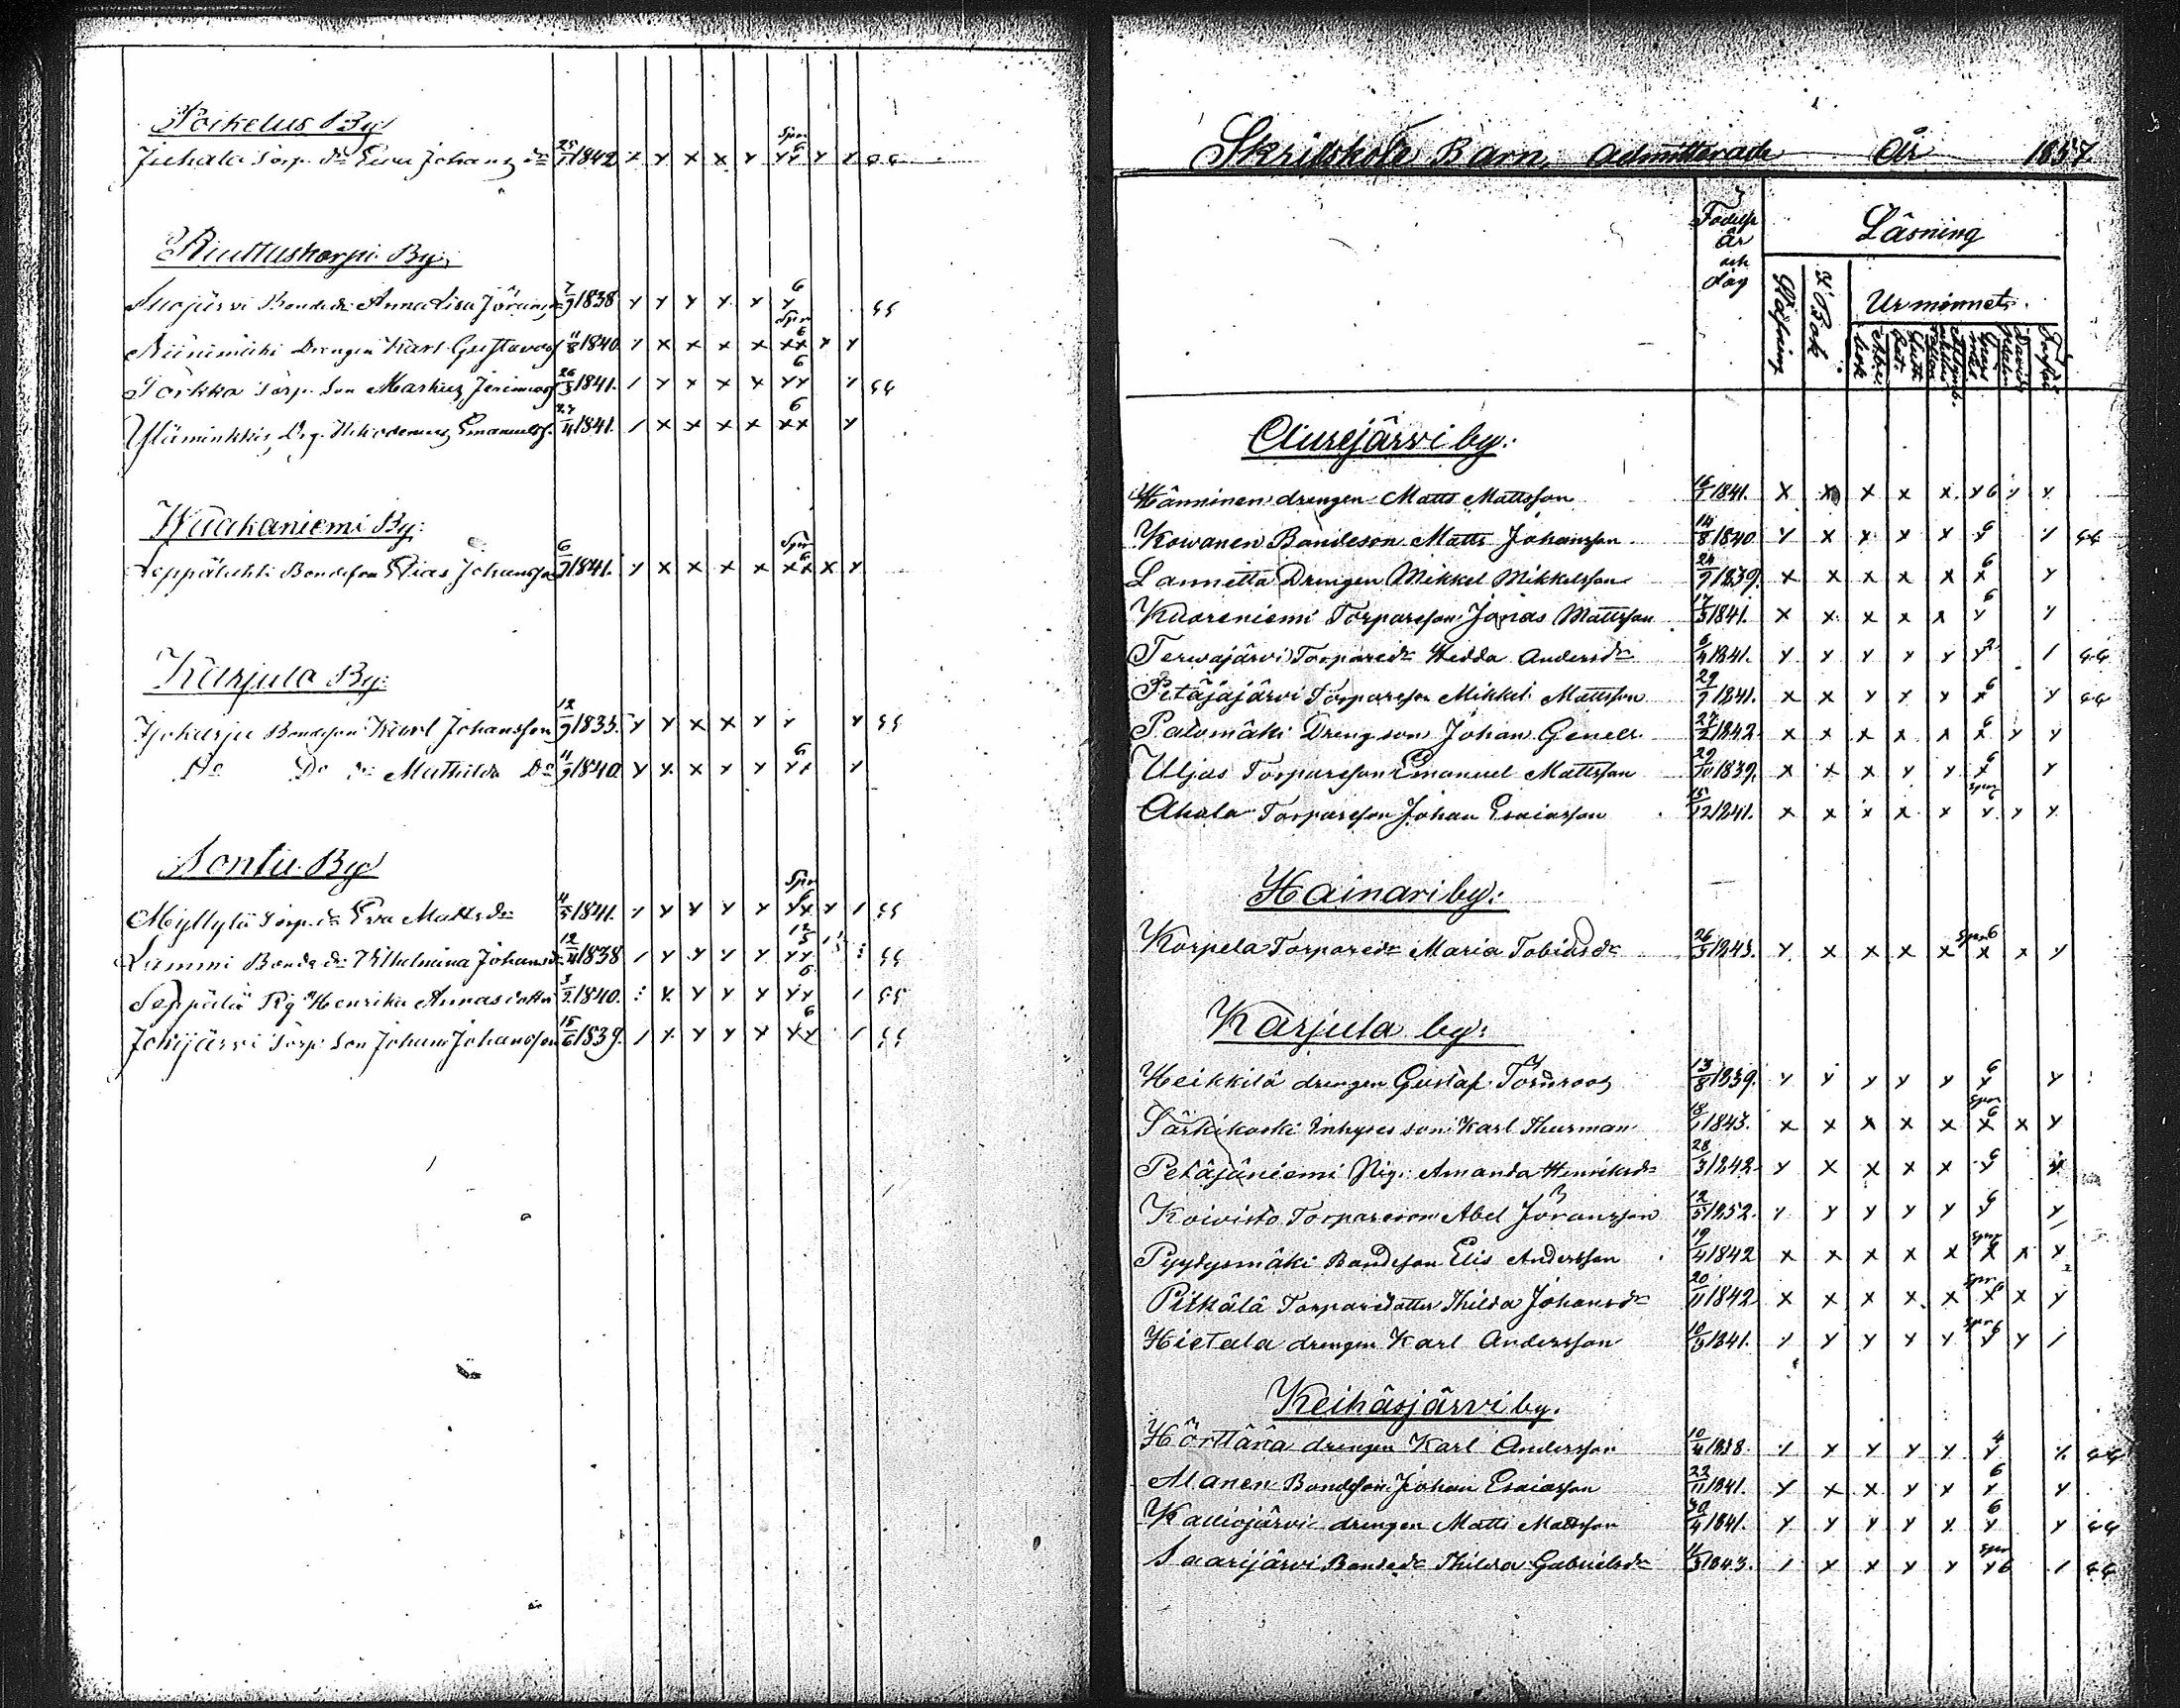 Poikelus By
Juhala Torp. dr Eva Johans dr 25/1 1842 x x x x x Spr 6 xx x x
Riuttuskorpi By
Suojärvi Bonde dr Anna Lisa Jörans dr 7/9 1838 x x x x x 6 x
Niinimäki Drengen Karl Gustavss 11/8 1840 x x x x x Spr 6 xx x x
Torkka Torp. Son Markus Jerimiass 26/3 1841. / x x x x 6 xx x
Yläminkkis, Drg. Nikodemus Emanuelss. 24/4 1841. / x x x x 6 xx x
Waakaniemi By:
Leppälahti Bondeson Elias Johansson 6/9 1841. x x x x x Spr 6 xx x x
Karjula By:
Bondeson Karl Johansson 12/9 1835. x x x x x x x
Do Do dr Mathilda Do 11/9 1840 x x x x x 6 xx x
Sontu By
Myllylä Torp. dr Eva Matts dr 11/5 1841. x x x x x Spr 6 xx x /
Lammi Bonde dr Wilhelmina Johans dr 12/4 1838 / x x x x xx
Seppälä Pig. Henrika Annas dotter 3/2 1840. x x x x xx /
Jokijärvi Torp. Son Johan Johansson 15/6 1839. / x x x x 6 xx /
Skriftskole Barn, admitterade År 1857
Födelse år och dag
Läsning
Stafning
I Bok
Ur minnet
Aurejärvi by:
Hänninen drengen Matts Mattsson 16/1 1841. x x x x x x 6 x x
Kowanen Bondeson Matts Johansson 14/8 1840 x x x x x 6 x x
Lannetta Drengen Mikkel Mikkelsson 24/9 1839. x x x x x 6 x x
Kuoreniemi Torpareson Jonas Mattsson 17/3 1841. x x x x x 6 x x
Terwajärvi Torparedr Hedda Andersdr 6/4 1841. x x x x x x 2 /
Petäjäjärvi Torpareson Mikkel Mattsson 29/9 1841. x x x x x 6 x x
Palomäki Drengson Johan Genelr. 27/2 1842 x x x x x 6 x x x
Uljas Torpareson Emanuel Mattsson 29/10 1839. x x x x x 6 x x
Ahola Torpareson Johan Esaiasson 15/12 1841. x x x x x Spr 6 x x x
Hainari by:
Korpela Torparedr Maria Tobiasdr 26/3 1843. x x x x x Spr 6 x x x
Karjula by:
Heikkilä drengen Gustaf Törnroos 13/8 1839. x x x x x 6 x x
Särkikoski Inhyses son Karl Thurman 18/1 1843. x x x x x Spr 6 x x x
Petäjäniemi Pig. Amanda Henriksdr 28/3 1842 x x x x x 6 x x
Koivisto Torpareson Abel Göransson 12/5 1852. x x x x x 6 x x
Pyydysmäki Bondeson Elis Andersson 19/4 1842 x x x x x Spr 6 x x x
Pitkälä Torparedotter Thilda Johansdr 20/11 1842 x x x x x Spr 6 x x x
Hietala drengen Karl Andersson 10/3 1841. x x x x x Spr 6 x x /
Keihäsjärvi by.
Hörttänä drengen Karl Andersson 10/4 1838. x x x x x 4 x x
Alanen Bondeson Johan Esaiasson 22/11 1841. x x x x x 6 x x
Kalliojärvi drengen Matti Mattsson 30/4 1841. x x x x x 6 x x
Saarijärvi Bondedr Thilda Gabrielsdr 11/3 1843. / x x x x Spr x 6 /